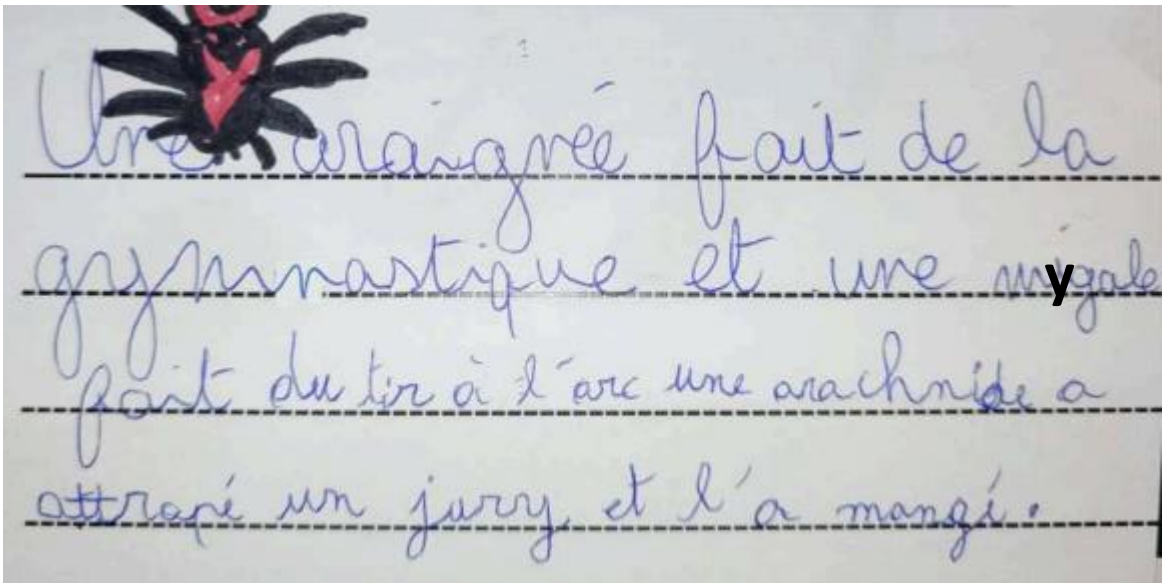 Une araignée fait de la
gymnastique et une mygale
fait du tir à l'arc une arachnide a
attrapé un jury et l'a mangé.